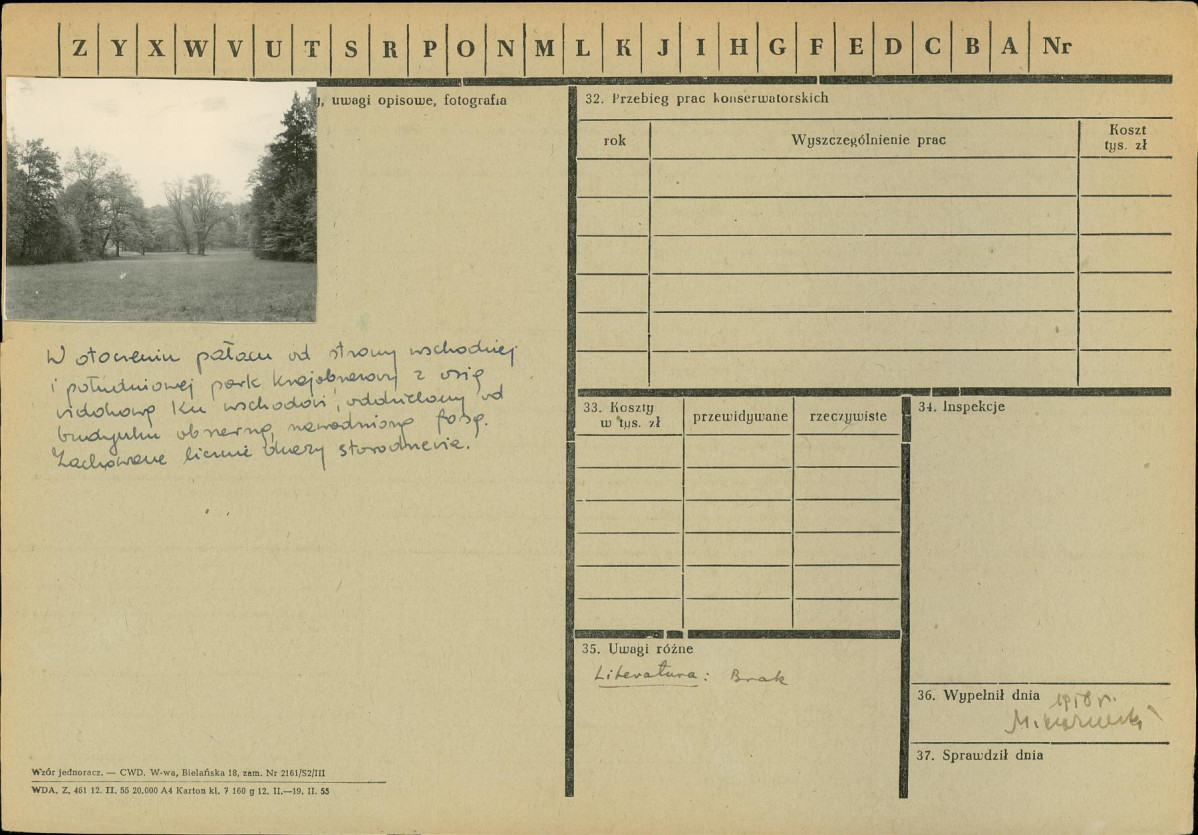 Z Y X W V U T S R P O N M L K J I H G F E D C B A Nr
, uwagi opisowe, fotografia
W otoczeniu pałacu od strony wschodniej
i południowej park krajobrazowy z osią
widokową ku wschodowi, oddzielony od
budynku obszerną, nawodnioną fosą.
Zachowane liczne okazy starodrzewia.
Wzór jednoracz. — CWD. W-wa, Bielańska 18, zam. Nr 2161/S2/III
WDA. Z. 461 12. II. 55 20.000 A4 Karton kl. 7 160 g 12. II.—19. II. 55
32. Przebieg prac konserwatorskich
rok
Wyszczególnienie prac
Koszt
tys. zł
33. Koszty
w tys. zł
przewidywane
rzeczywiste
34. Inspekcje
35. Uwagi różne
Literatura: Brak
36. Wypełnił dnia
37. Sprawdził dnia